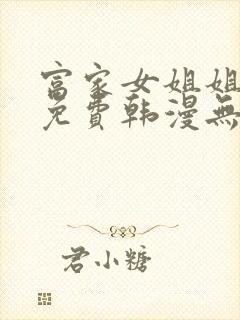 富家女姐姐
免費韩漫無
君小糖